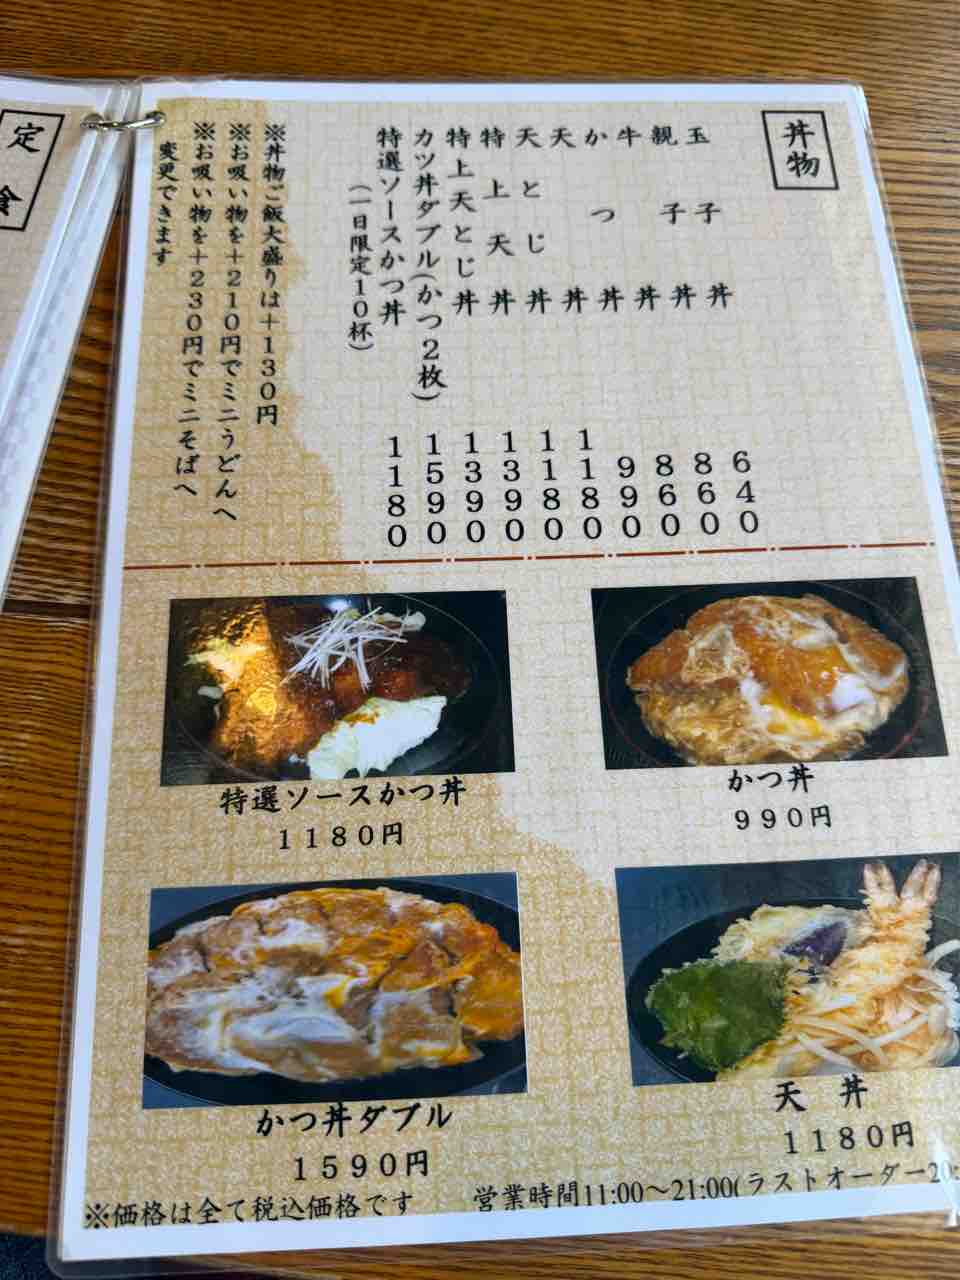 丼物
玉子丼 640
親子丼 860
牛丼 860
かつ丼 990
天丼 1180
天とじ丼 1180
特上天丼 1390
特上天とじ丼 1390
カツ丼ダブル(かつ2枚) 1590
特選ソースかつ丼 1180
(一日限定10杯)
※丼物ご飯大盛りは+130円
※お吸い物を+210円でミニうどんへ
※お吸い物を+230円でミニそばへ
変更できます
特選ソースかつ丼
1180円
かつ丼
990円
かつ丼ダブル
1590円
天丼
1180円
※価格は全て税込価格です
営業時間11:00~21:00(ラストオーダー20:
定食